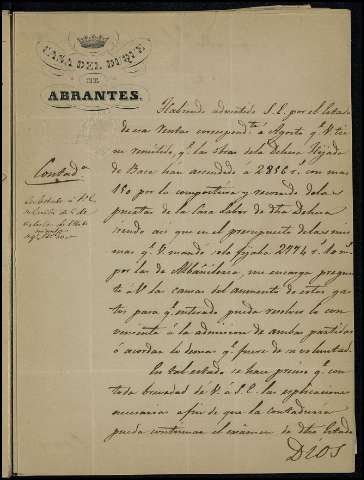 CASA DEL DUQUE
DE
ABRANTES.
Contad.ª
Habiendo advertido S.E. por el Estado
de esa Rentas correspond.te a Agosto q.e V. tie
ne remitido, q.e las obras de la Dehesa Tejada
de Baeza han ascendido à 2856 r.s con mas
150 por la compostura y recorrido de la
puerta de la Casa Labor de dha Dehesa
siendo asi que en el presupuesto de las mis
mas q.e V. mandó solo fijaba 2774 r.s
por las de Albañileria, me encarga pregunte
à V. la causa del aumento de estos gas
tos para q.e enterado pueda resolver lo con
veniente à la admision de ambas partidas
ó acordar lo demas q.e fuere de su voluntad.
En tal estado se hace preciso q.e con
toda brevedad de V. à S.E. las esplicaciones
necesarias a fin de que la contaduria
pueda continuar el exámen de dho Estado
DIOS